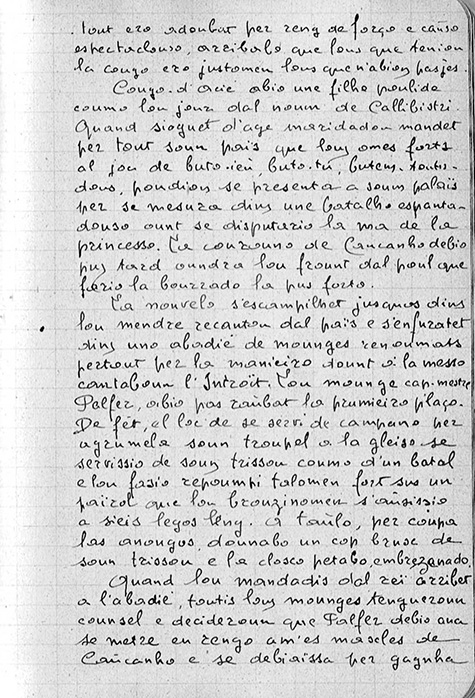 tout ero adoubat per reng de forço e causo
espectaclouso, arribabo que lous que tenion
la cougo ero justomen lous que n'abion pas jes.
Cougo-d'acié abio uno filho poulido
coumo lou jour dal noum de Callibistri.
Quand sioguet d'age maridadou mandet
per tout soun païs que lous omes forts
al joc de buto-ieu, buto-tu, butens-toutis-
dous, poudion se presenta a soun palaïs
per se mesura dins uno batalho espanta-
douso ount se disputario la ma de la
princesso. La courouno de Caucanho debio
pus tard oundra lou frount dal poul que
fario la bourrado la pus forto.
La nouvelo s'escampilhet jusquos dins
lou mendre recantou dal païs e s'enfuratet
dins uno abadié de mounges renoumats
pertout per la manieiro dount a la messo
cantaboun l'Introït. Lou mounge cap-mestre
Palfer, abio pas raubat la prumieiro plaço.
De fèt, el loc de se servi de campano per
agrumela soun troupel a la gleiso se
servissio de soun trissou coumo d'un batal
e lou fasio repoumpi talomen fort sus un
païrol que lou brounzinomen s'ausissio
a sieis legos leng. A taulo, per coupa
las anougos, dounabo un cop brusc de
soun trissou e la closco petabo, embrezenado.
Quand lou mandadis dal rei arribet
a l'abadié, toutis lous mounges tengueroun
counsel e decideroun que Palfer debio ana
se metre en rengo am'es mascles de
Caucanho e se debiaissa per gagnha